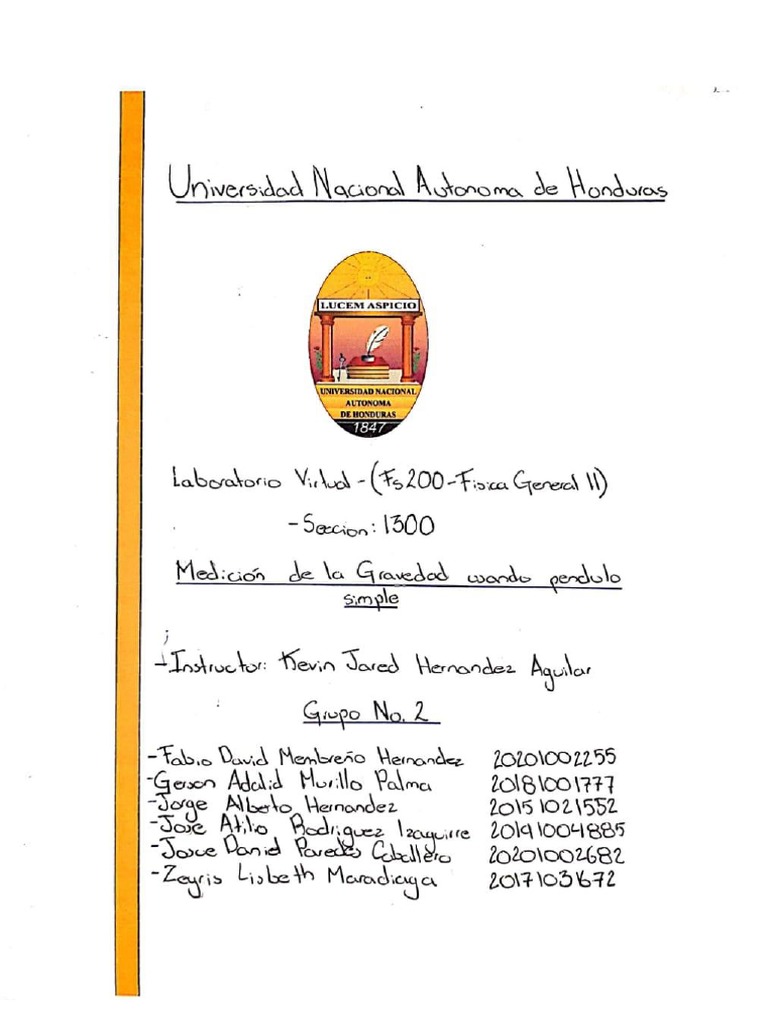 Universidad Nacional Autonoma de Honduras
LUCEM ASPICIO
UNIVERSIDAD NACIONAL
AUTONOMA
DE HONDURAS
1847
Laboratorio Virtual - (Fs200 - Fisica General II)
- Seccion: 1300
Medición de la Gravedad usando pendulo
simple
- Instructor: Kevin Jared Hernandez Aguilar
Grupo No. 2
- Fabio David Membreño Hernandez 20201002255
- Gerson Adalid Murillo Palma 20181001777
- Jorge Alberto Hernandez 20151021552
- Jose Atilio Rodriguez Izaguirre 20191004885
- Josue Daniel Paredes Caballero 20201002682
- Zeyris Lisbeth Maradiaga 20171031672